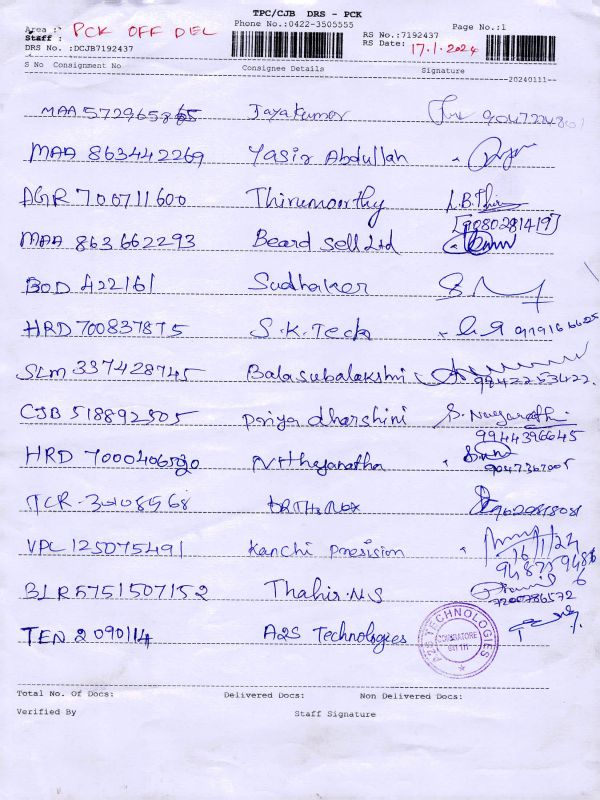 TPC/CJB DRS - PCK
Phone No.:0422-3505555 Page No.:1
Area : PCK OFF DEL
Staff : RS No.:7192437
DRS No. :DCJB7192437 RS Date: 17.1.2024
S No Consignment No Consignee Details Signature
20240111
MAA 572965865 Jayakumar
MAA 863442269 Yasir Abdullah
AGR 700711600 Thirumoorthy
[9080281419]
MAA 863662293 Beard sell Ltd
BOD 422161 Sudhaker
HRD 700837875 S.K. Tech
SLM 337428745 Balasubalakshmi
9842253422.
CJB 518892505 Priya dharshini
9944396645
HRD 7000406530
9047367005
9629818081
VPC 125075491 Kanchi presision
16/1/24
BLR 5751507152 Thahir.N.S
7200786572
TEN 2090114 A2S Technologies
A2S TECHNOLOGIES
COIMBATORE
641 111
Total No. Of Docs: Delivered Docs: Non Delivered Docs:
Verified By Staff Signature